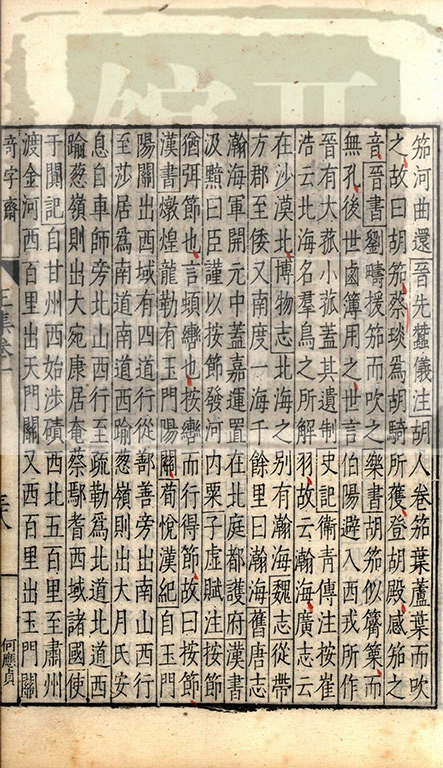 笳河曲還晉先蠶儀注胡人卷笳葉蘆葉而吹
之故曰胡笳蔡琰爲胡騎所獲登胡殿感笳之
音晉書劉疇援笳而吹之樂書胡笳似觱篥而
無孔後世鹵簿用之世言伯陽避入西戎所作
晉有大菰小菰蓋其遺制史記衛青傳注按崔
浩云北海名羣鳥之所解羽故云瀚海廣志云
在沙漠北博物志北海之別有瀚海魏志從帶
方郡至倭又南度一海千餘里曰瀚海舊唐志
瀚海軍開元中蓋嘉運置在北庭都護府漢書
汲黯曰臣謹以按節發河内粟子虛賦注按節
猶弭節也言頓轡也按轡而行得節故曰按節
漢書燉煌龍勒有玉門陽關荀悅漢紀自玉門
陽關出西域有四道行從鄯善旁出南山西行
至莎居爲南道南道西踰葱嶺則出大月氏安
息自車師旁北山西行至疏勒爲北道北道西
踰葱嶺則出大宛康居奄蔡鄢耆西域諸國使
于闐記自甘州西始涉磧西北五百里至肅州
渡金河西百里出天門關又西百里出玉門關
奇字齋
卷一
何應貞